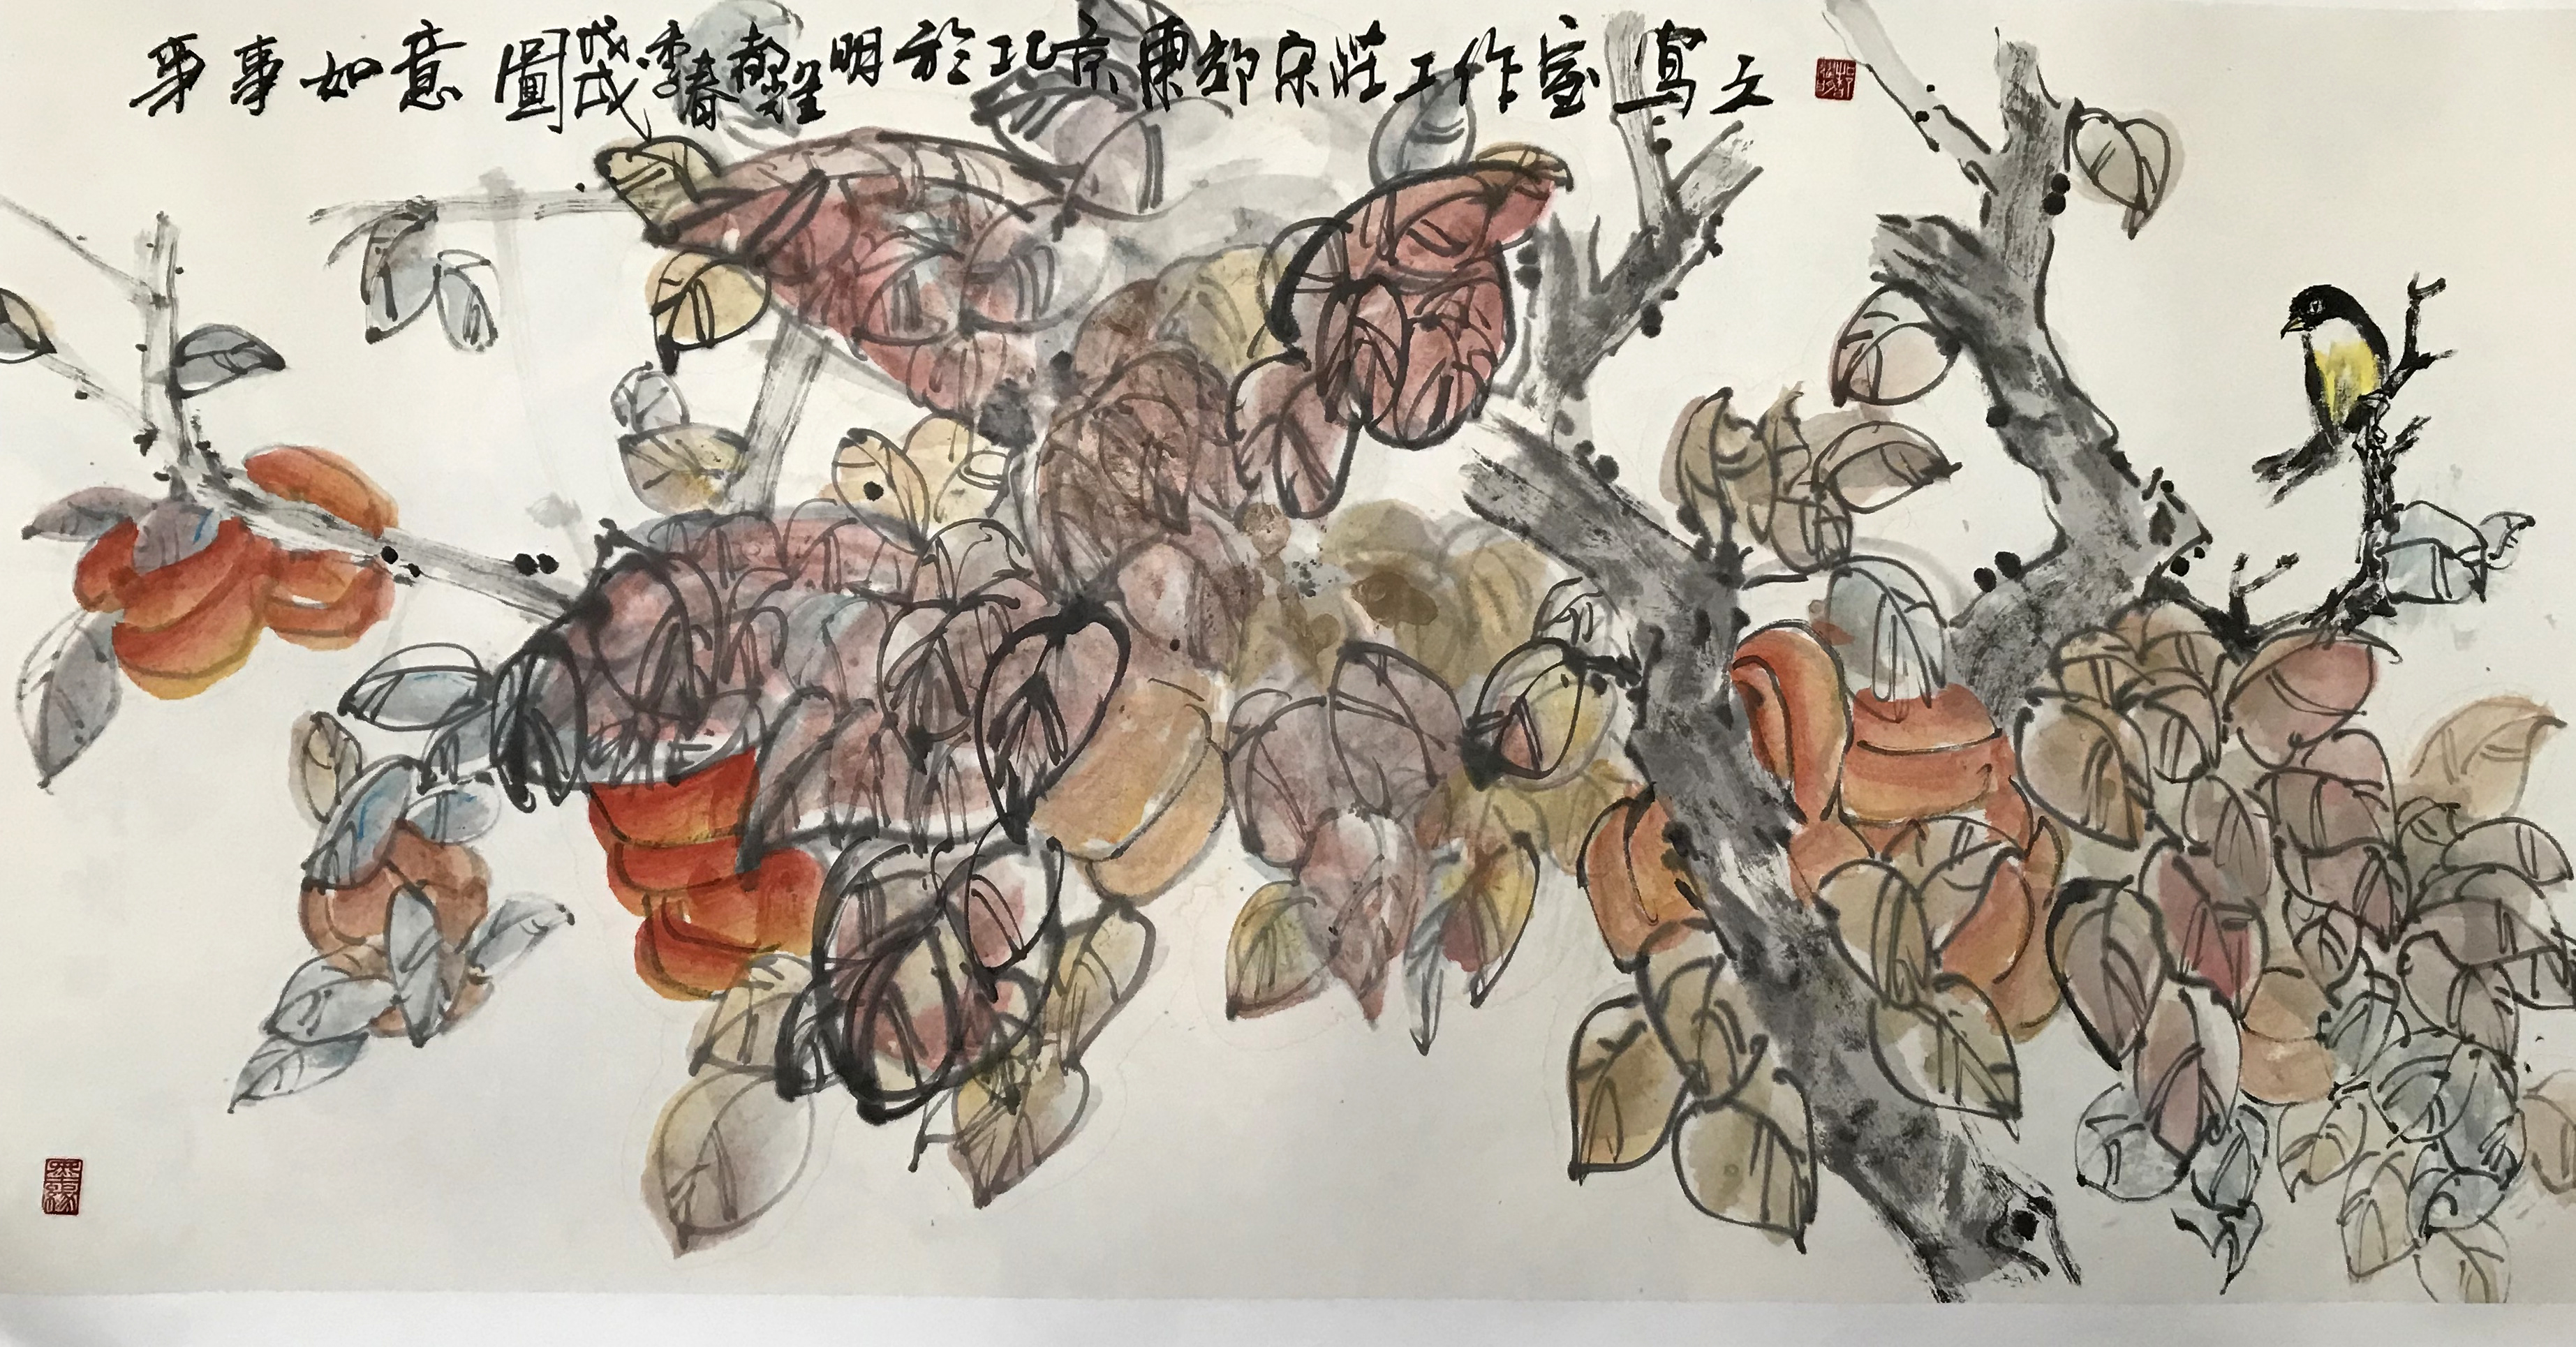 事事如意圖戊戌季春明於北京東宋莊工作室寫之